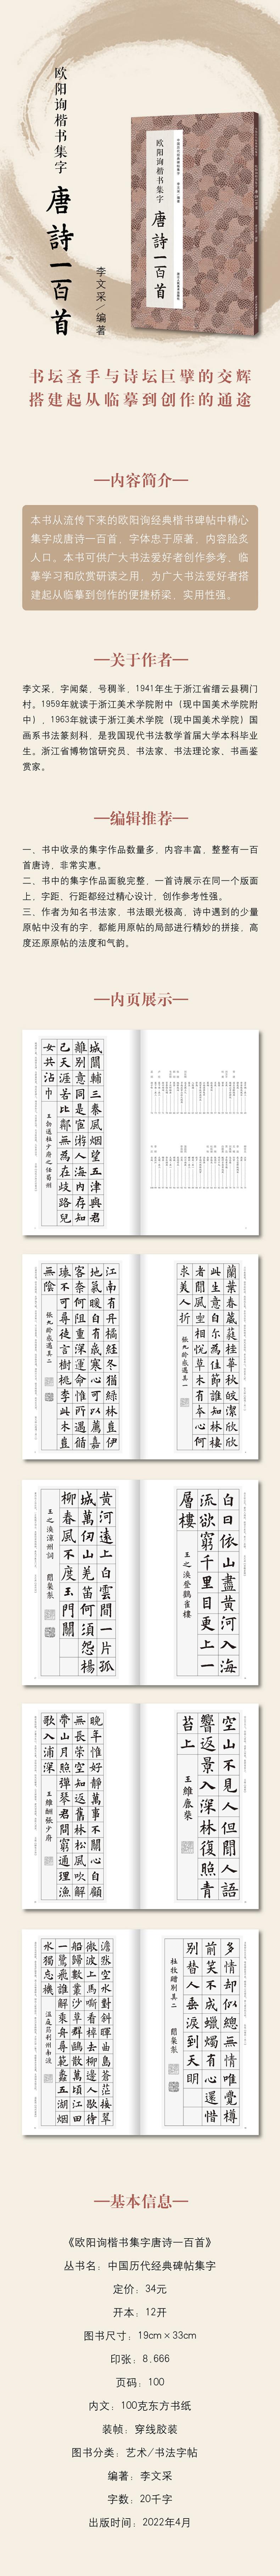 欧阳询楷书集字
唐詩一百首
李文采/编著
欧阳询楷书集字
唐詩一百首
书坛圣手与诗坛巨擘的交辉
搭建起从临摹到创作的通途
内容简介
本书从流传下来的欧阳询经典楷书碑帖中精心
集字成唐诗一百首，字体忠于原著，内容脍炙
人口。本书可供广大书法爱好者创作参考、临
摹学习和欣赏研读之用，为广大书法爱好者搭
建起从临摹到创作的便捷桥梁，实用性强。
关于作者
李文采，字闻粲，号稠峯，1941年生于浙江省缙云县稠门
村。1959年就读于浙江美术学院附中（现中国美术学院附
中），1963年就读于浙江美术学院（现中国美术学院）国
画系书法篆刻科，是我国现代书法教学首届大学本科毕业
生。浙江省博物馆研究员、书法家、书法理论家、书画鉴
赏家。
编辑推荐
一、书中收录的集字作品数量多，内容丰富，整整有一百
首唐诗，非常实惠。
二、书中的集字作品面貌完整，一首诗展示在同一个版面
上，字距、行距都经过精心设计，创作参考性强。
三、作者为知名书法家，书法眼光极高，诗中遇到的少量
原帖中没有的字，都能用原帖的局部进行精妙的拼接，高
度还原原帖的法度和气韵。
内页展示
城闕輔三秦風烟望五津與君
離別意同是宦遊人海内存知
己天涯若比鄰無為在歧路兒
女共沾巾
王勃送杜少府之任蜀州
蘭葉春葳蕤桂華秋皎潔欣欣
此生意自尔為佳節誰知林棲
者聞風坐相悦草木有本心何
求美人折
張九齡感遇其一
江南有丹橘經冬猶綠林豈伊
地氣暖自有歲寒心可以薦嘉
客奈何阻重深運命惟所遇循
環不可尋徒言樹桃李此木豈
無陰
張九齡感遇其二
白日依山盡黄河入海
流欲窮千里目更上一
層樓
王之渙登鸛雀樓
黄河遠上白雲間一片孤
城萬仞山羌笛何須怨楊
柳春風不度玉門關
王之渙涼州詞
聞粲集
空山不見人但聞人語
響返景入深林復照青
苔上
王維鹿柴
晚年惟好静萬事不關心自顧
無長策空知返舊林松風吹解
帶山月照彈琴君問窮通理漁
歌入浦深
王維酬張少府
多情却似總無情唯覺樽
前笑不成蠟燭有心還惜
别替人垂淚到天明
杜牧贈别其二
聞粲集
澹然空水對斜暉曲島蒼茫接翠
微波上馬嘶看棹去柳邊人歇待
船歸數叢沙草群鷗散萬頃江田
一鷺飛誰解乘舟尋范蠡五湖烟
水獨忘機
溫庭筠利州南渡
基本信息
《欧阳询楷书集字唐诗一百首》
丛书名：中国历代经典碑帖集字
定价：34元
开本：12开
图书尺寸：19cm×33cm
印张：8.666
页码：100
内文：100克东方书纸
装帧：穿线胶装
图书分类：艺术/书法字帖
编著：李文采
字数：20千字
出版时间：2022年4月